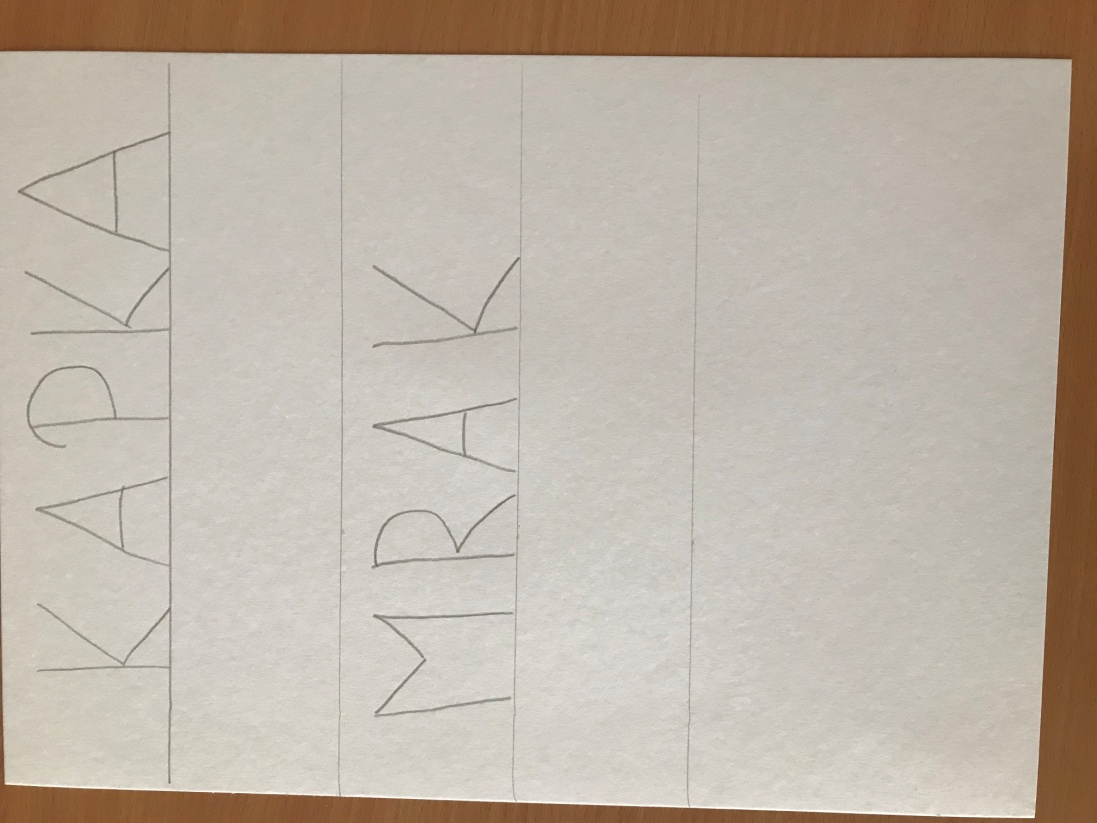 KAPKA
MRAK